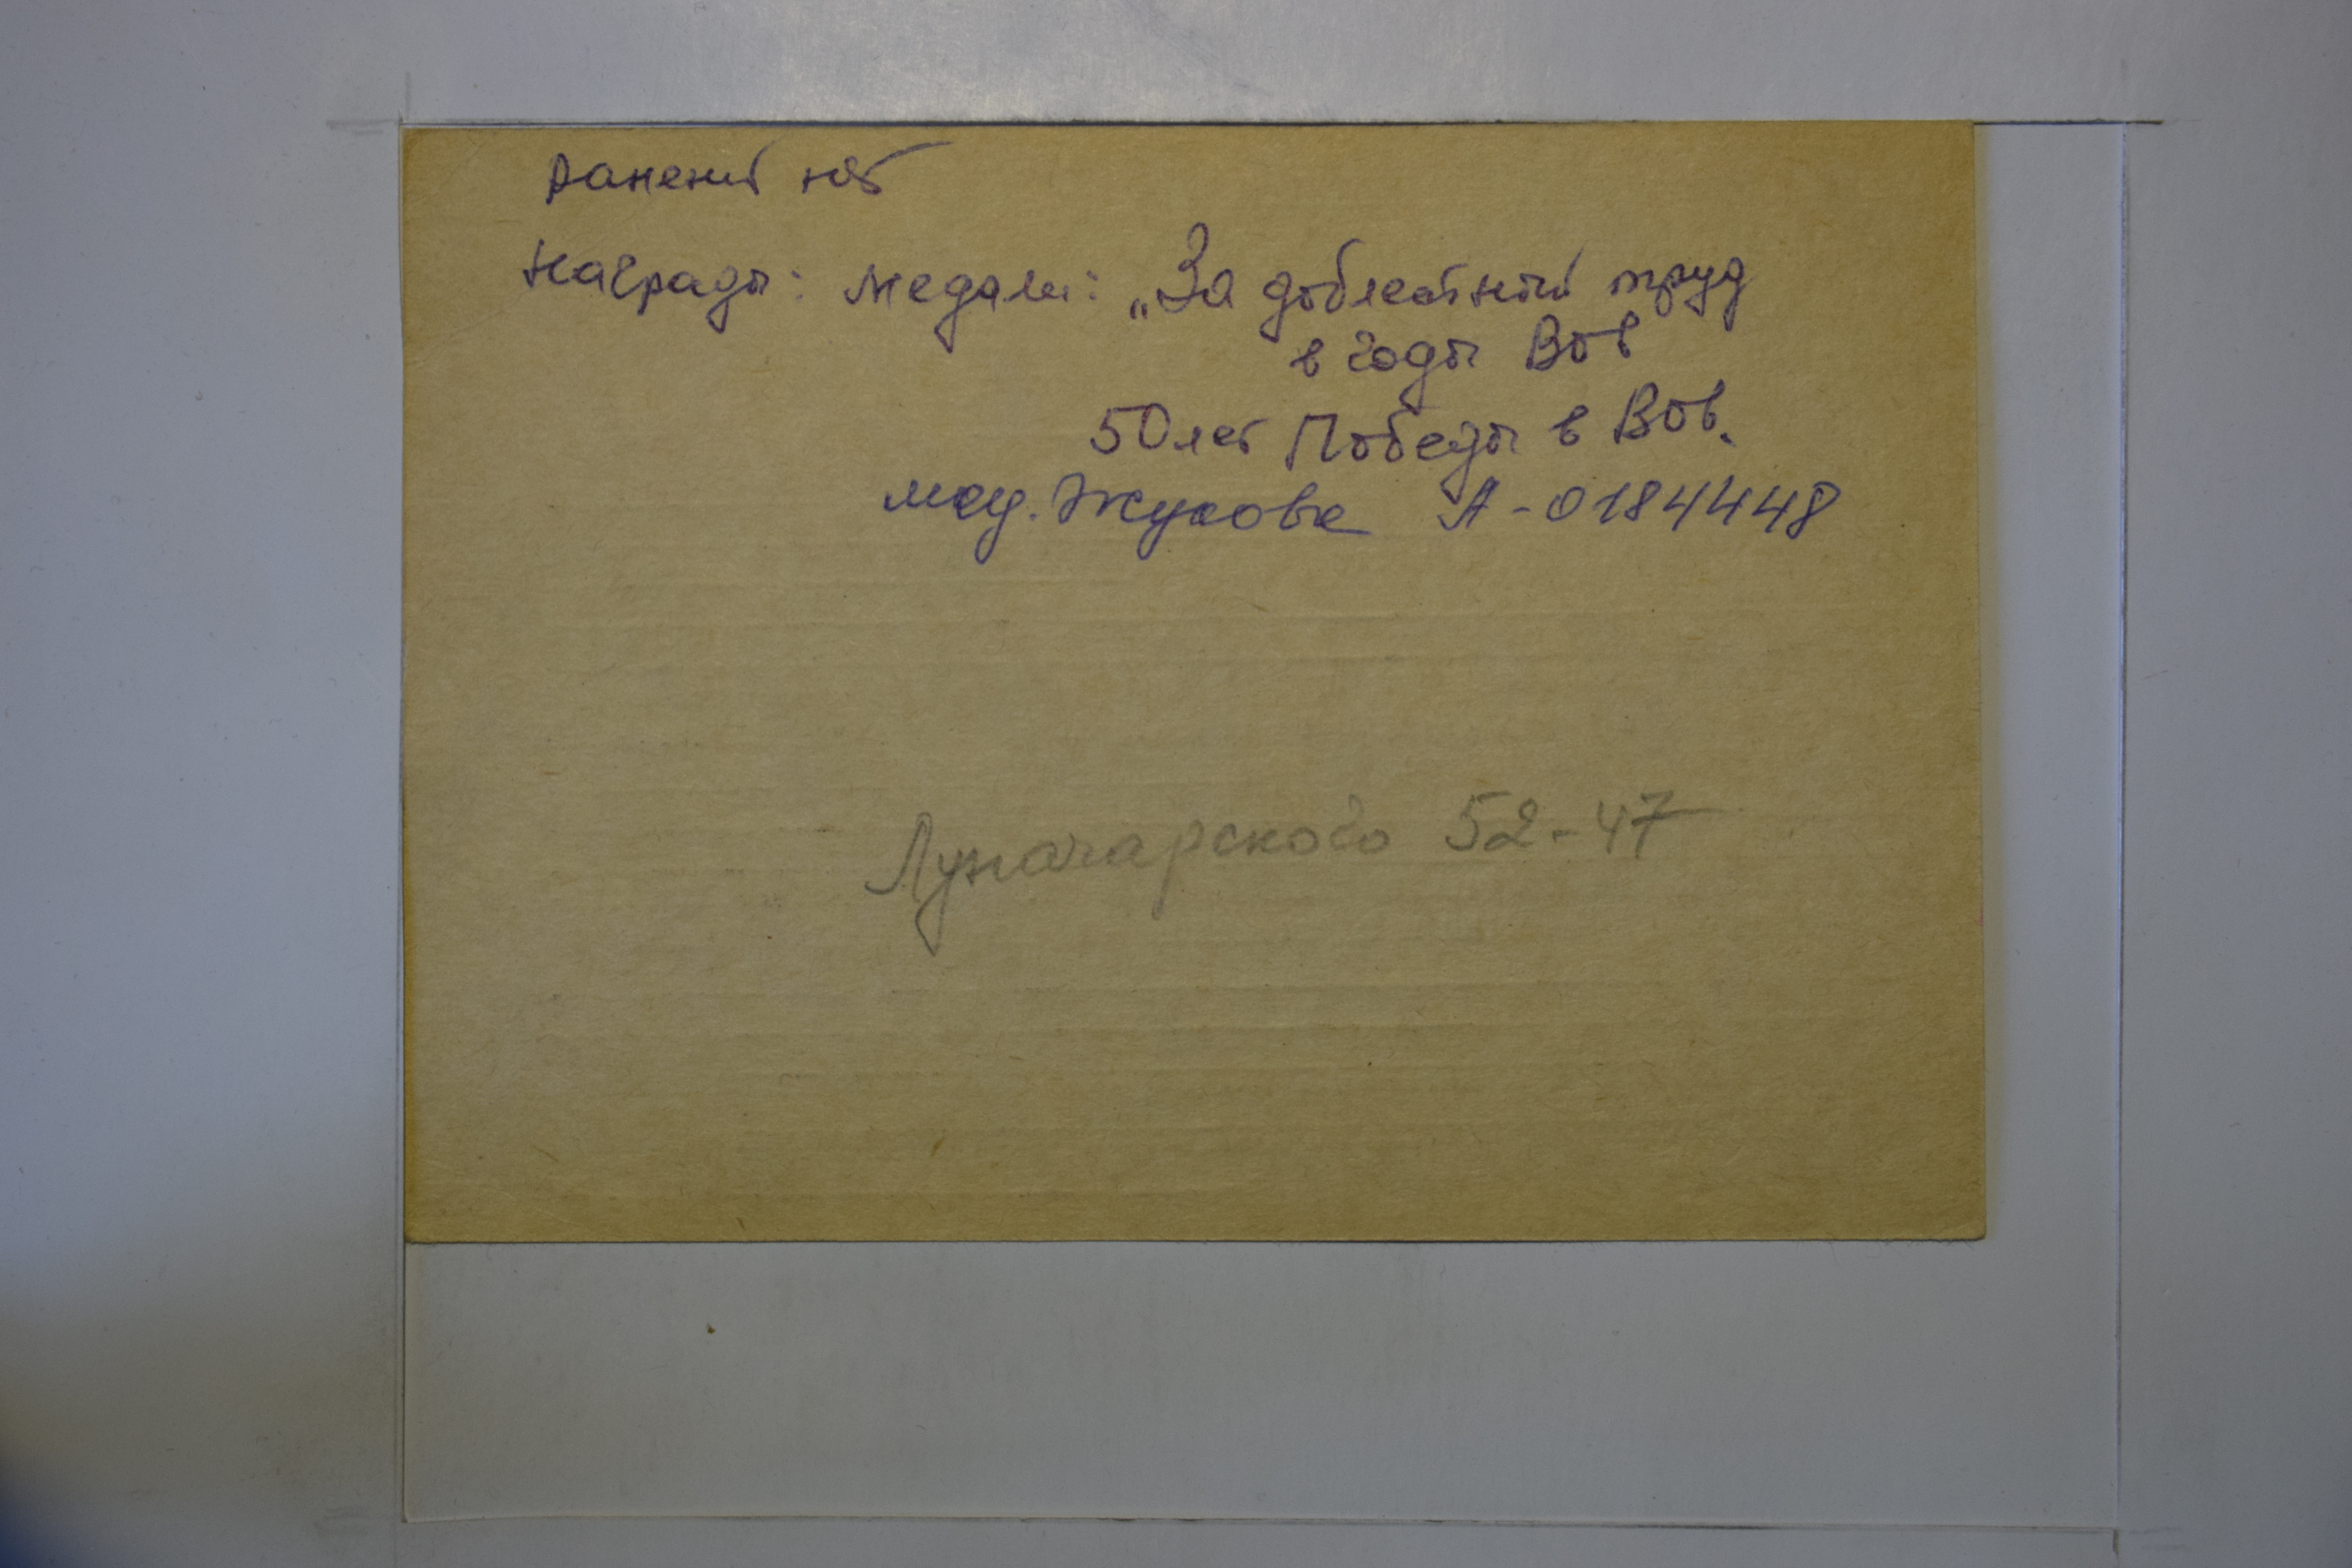 ранений нет
награды: медали: „За доблестный труд
в годы ВОВ
50 лет Победы в ВОВ.
мед. Жукова А-0184448
Луначарского 52-47